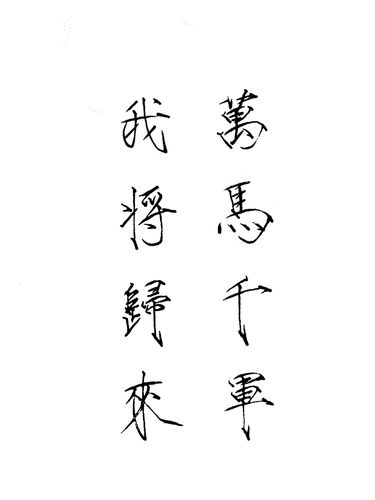 萬馬千軍
我將歸來